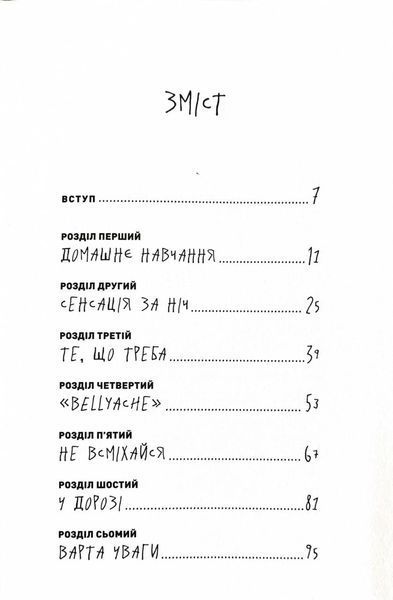 ЗМІСТ
ВСТУП 7
РОЗДІЛ ПЕРШИЙ
ДОМАШНЄ НАВЧАННЯ 11
РОЗДІЛ ДРУГИЙ
СЕНСАЦІЯ ЗА НІЧ 25
РОЗДІЛ ТРЕТІЙ
ТЕ, ЩО ТРЕБА 39
РОЗДІЛ ЧЕТВЕРТИЙ
«BELLYACHE» 53
РОЗДІЛ П'ЯТИЙ
НЕ ВСМІХАЙСЯ 67
РОЗДІЛ ШОСТИЙ
У ДОРОЗІ 81
РОЗДІЛ СЬОМИЙ
ВАРТА УВАГИ 95